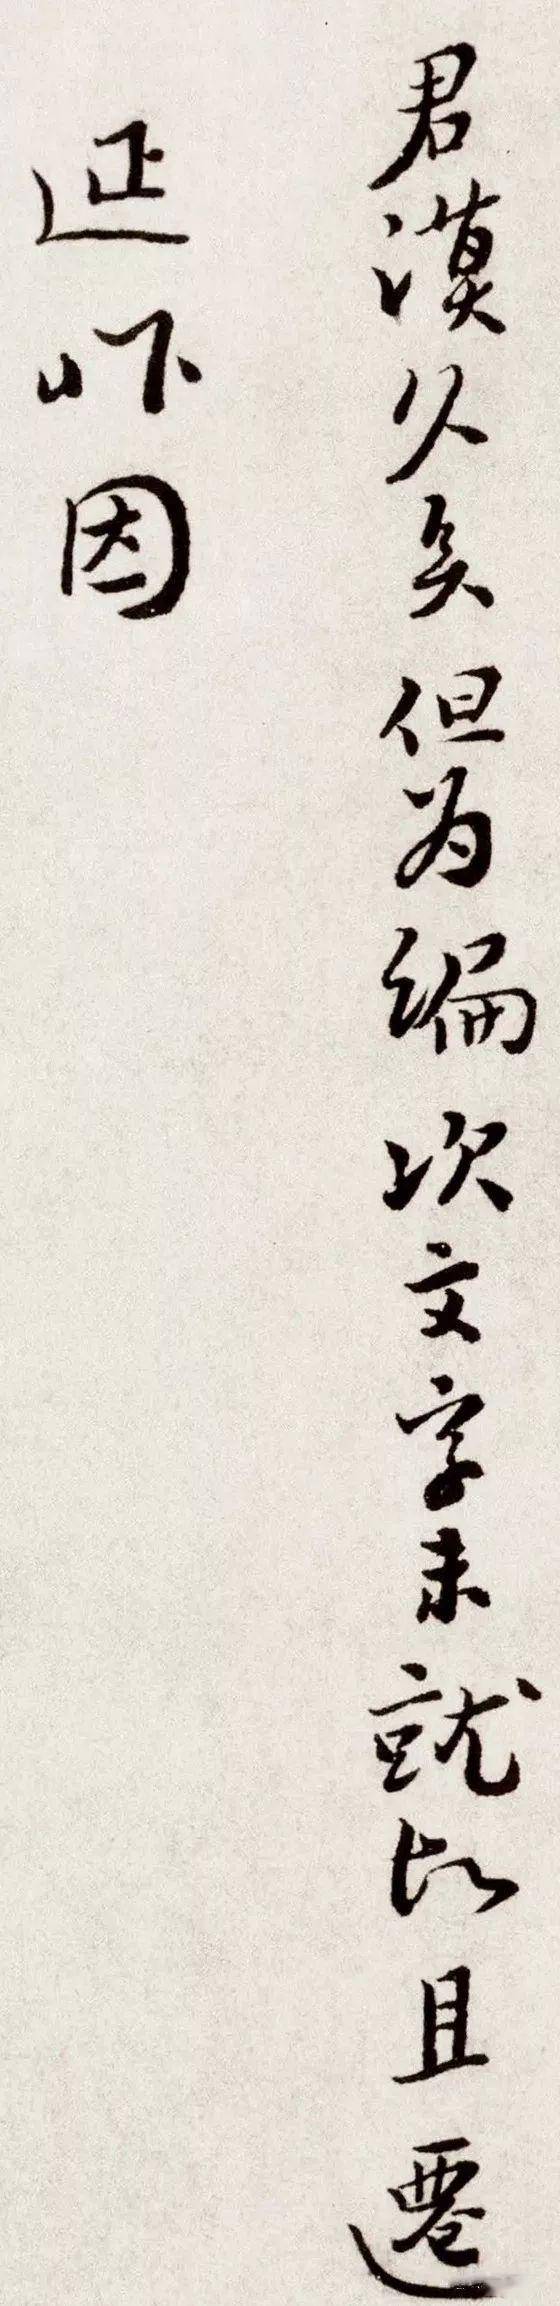 君謨久矣但為編次文字未就比且遷
延昨因